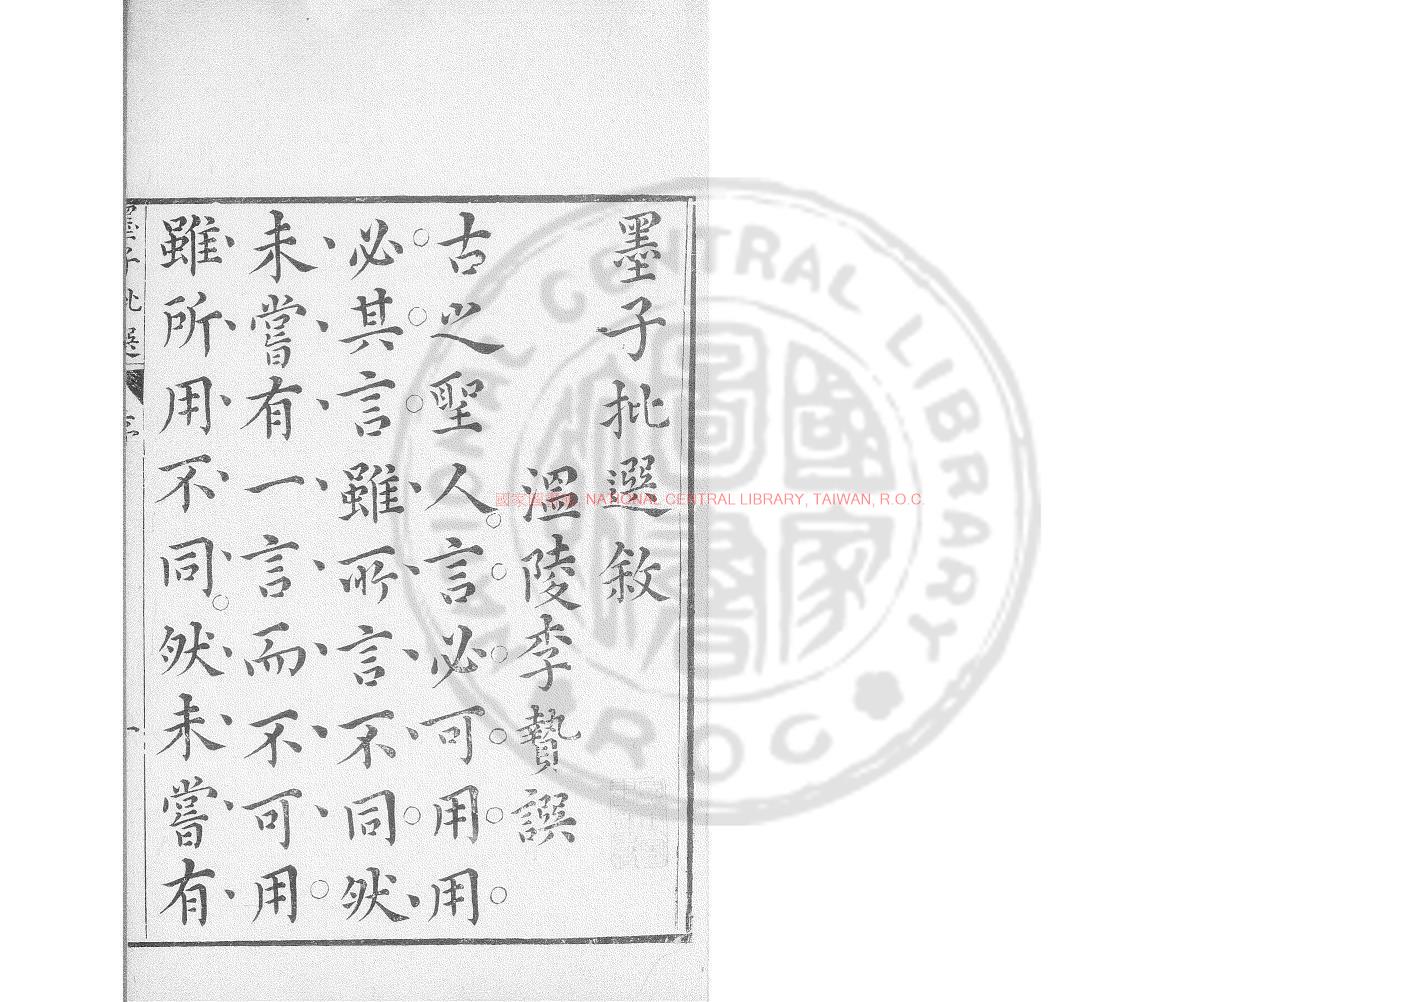 墨子批選敘
溫陵李贄譔
古之聖人言必可用用
必其言雖所言不同然
未嘗有一言而不可用
雖所用不同然未嘗有
墨子批選
序
一
NATIONAL CENTRAL LIBRARY, TAIWAN, R.O.C.
NATIONAL CENTRAL LIBRARY
R.O.C